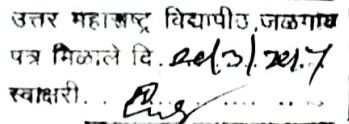 उत्तर महाराष्ट्र विद्यापीठ, जळगाव
पत्र मिळाले दि.
स्वाक्षरी. .